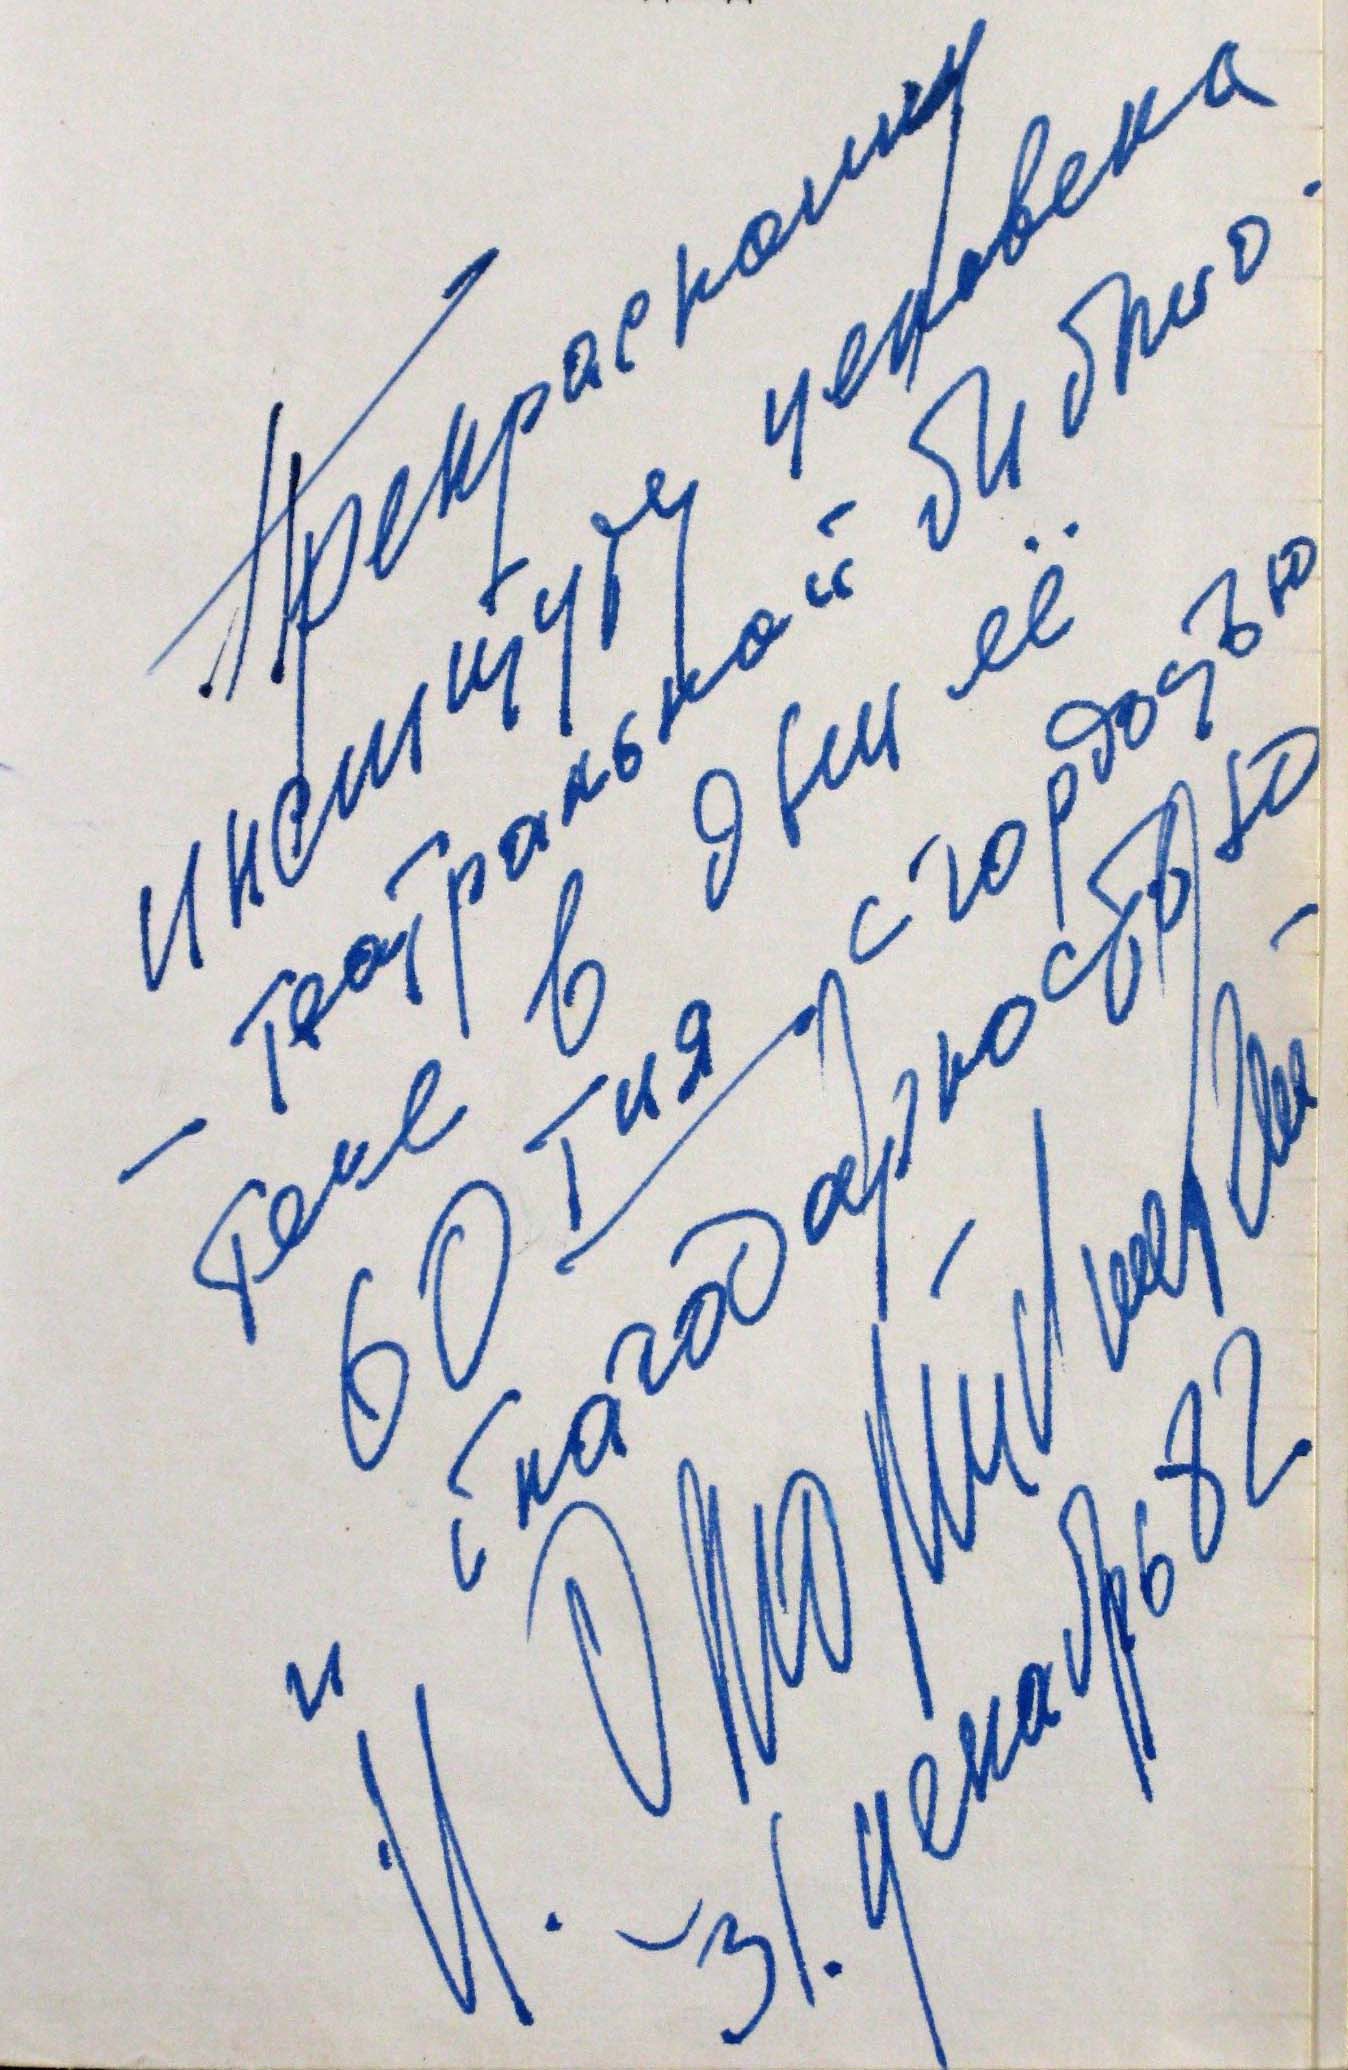 Прекрасному
институту человека
– театральной библио-
теке в дни её
60тия с гордостью
и благодарностью
И. Смоктуновский
31. декабрь 82